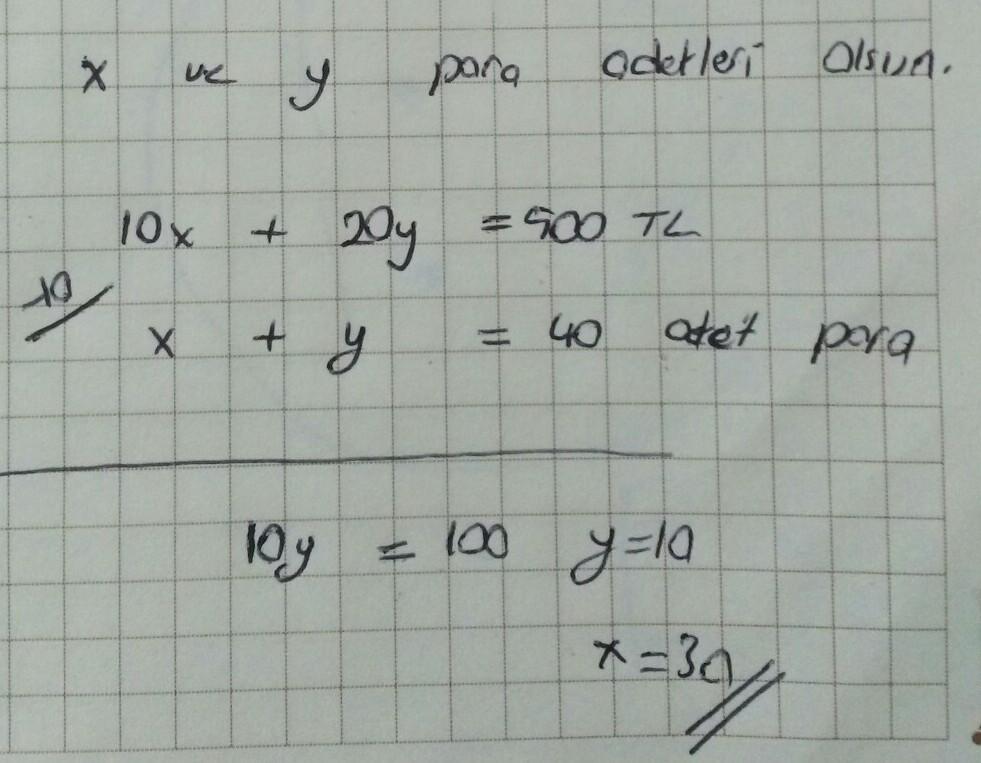 x ve y para adetleri olsun.
10x + 20y = 500 TL
10/ x + y = 40 adet para
10y = 100 y=10
x=30